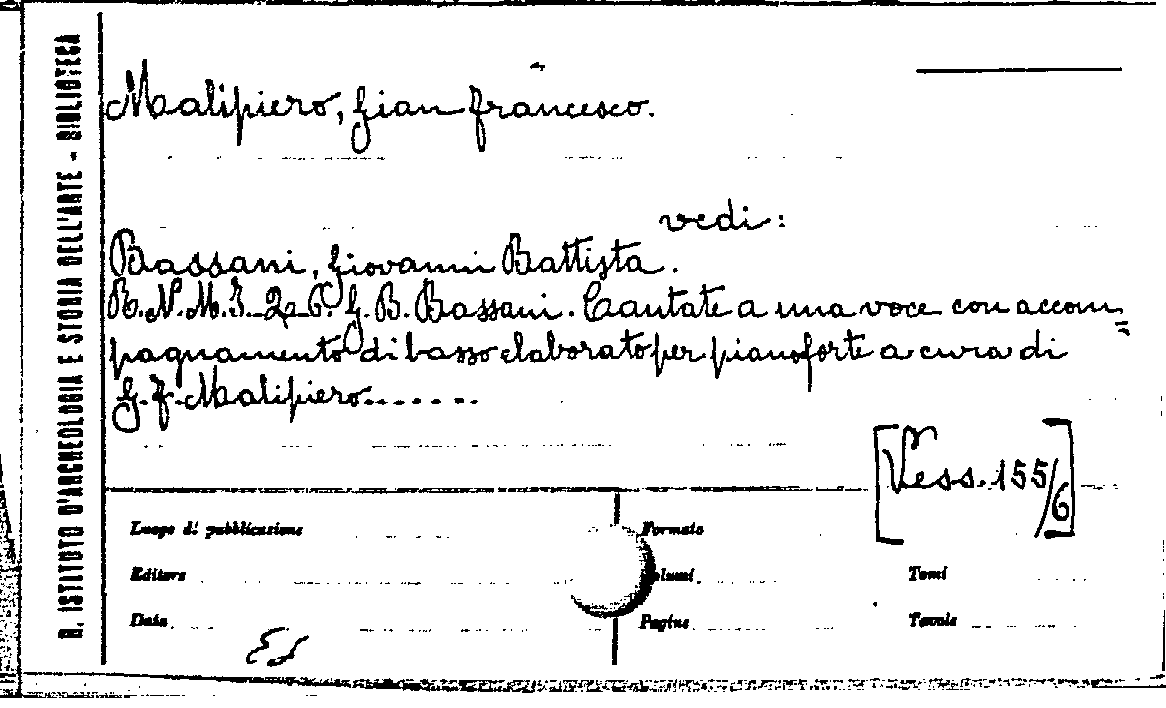 R. ISTITUTO D'ARCHEOLOGIA E STORIA DELL'ARTE - BIBLIOTECA
Malipiero, Gian Francesco.
vedi:
Bassani, Giovanni Battista.
R.N.M.I. 2e6. G. B. Bassani. Cantate a una voce con accom=
pagnamento di basso elaborato per pianoforte a cura di
G. F. Malipiero........
[Vess. 155/6]
Luogo di pubblicazione
Formato
Editore
Volumi
Tomi
Data
Pagine
Tavole